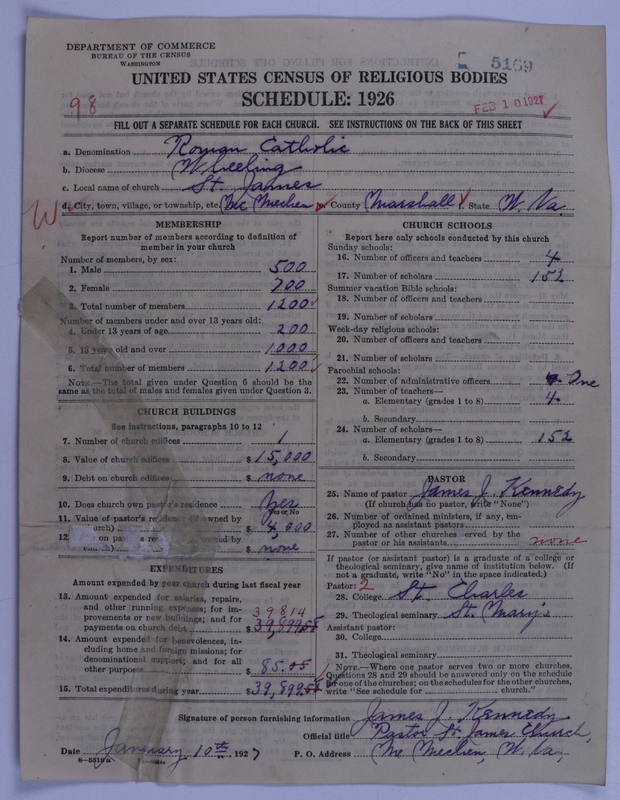 DEPARTMENT OF COMMERCE
BUREAU OF THE CENSUS
WASHINGTON
5169
UNITED STATES CENSUS OF RELIGIOUS BODIES
SCHEDULE: 1926
98
FEB 10 1927
FILL OUT A SEPARATE SCHEDULE FOR EACH CHURCH. SEE INSTRUCTIONS ON THE BACK OF THIS SHEET
a. Denomination Roman Catholic
b. Diocese Wheeling
c. Local name of church St. James
d. City, town, village, or township, etc. Mc Mechen County Marshall f. State W. Va.
W
MEMBERSHIP
Report number of members according to definition of
member in your church
Number of members, by sex:
1. Male 500
2. Female 700
3. Total number of members 1200
Number of members under and over 13 years old:
4. Under 13 years of age 200
5. 13 years old and over 1000
6. Total number of members 1200
NOTE.—The total given under Question 6 should be the
same as the total of males and females given under Question 3.
CHURCH BUILDINGS
See instructions, paragraphs 10 to 12
7. Number of church edifices 1
8. Value of church edifices $ 15,000
9. Debt on church edifices $ none
10. Does church own pastor's residence Yes
Yes or No
11. Value of pastor's residence (if owned by
church) $ 4,000
12. on pastor's residence owned by
church) $ none
EXPENDITURES
Amount expended by your church during last fiscal year
13. Amount expended for salaries, repairs,
and other running expenses; for im-
provements or new buildings; and for
payments on church debt $ 39,899.55
39814
14. Amount expended for benevolences, in-
cluding home and foreign missions; for
denominational support; and for all
other purposes $ 85.05
15. Total expenditures during year $ 39,899.55
CHURCH SCHOOLS
Report here only schools conducted by this church
Sunday schools:
16. Number of officers and teachers 4
17. Number of scholars 152
Summer vacation Bible schools:
18. Number of officers and teachers
19. Number of scholars
Week-day religious schools:
20. Number of officers and teachers
21. Number of scholars
Parochial schools:
22. Number of administrative officers One
23. Number of teachers—
a. Elementary (grades 1 to 8) 4
b. Secondary
24. Number of scholars—
a. Elementary (grades 1 to 8) 152
b. Secondary
PASTOR
25. Name of pastor James J. Kennedy
(If church has no pastor, write "None")
26. Number of ordained ministers, if any, em-
ployed as assistant pastors
27. Number of other churches served by the
pastor or his assistants none
If pastor (or assistant pastor) is a graduate of a college or
theological seminary, give name of institution below. (If
not a graduate, write "No" in the space indicated.)
Pastor: 2
28. College St. Charles
29. Theological seminary St. Mary's
Assistant pastor:
30. College
31. Theological seminary
NOTE.—Where one pastor serves two or more churches,
Questions 28 and 29 should be answered only on the schedule
for one of the churches; on the schedules for the other churches,
write "See schedule for church."
Signature of person furnishing information James J. Kennedy
Official title Pastor St. James Church,
Date January 10th, 1927 P. O. Address Mc Mechen, W. Va.
8—5518a